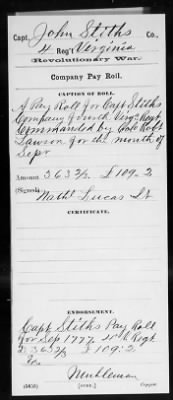 Capt. John Stiths Co.,
4 Reg't Virginia
Revolutionary War.
Company Pay Roll.
CAPTION OF ROLL.
A Pay Roll for Capt Stiths
Company fourth Virga Regt
Commanded by Colo Robt
Lawson for the month of
Sepr
Amount 363 2/3 £109.2
(Signed) Nathl Lucas Lt
CERTIFICATE.
ENDORSEMENT.
Capt. Stiths Pay Roll
for Sep 1777 4th Regt
$ 363 2/3 £109:2
Copyist.